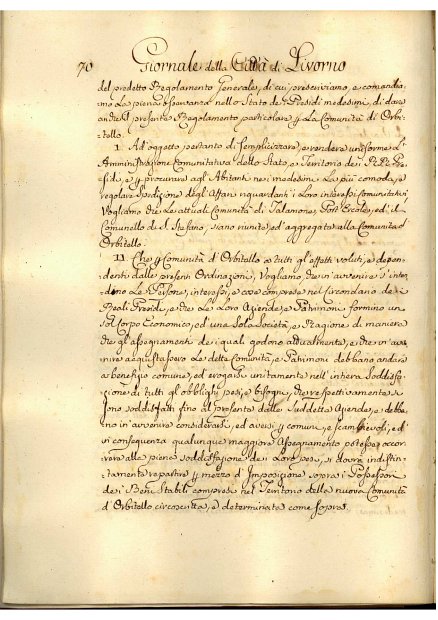 70 Giornale della Città di Livorno
del predetto Regolamento Generale, di cui prescriviamo, e comandia-
mo la piena osservanza nello Stato dei Presidi medesimi, di dare
anche il presente Regolamento particolare p la Comunità di Orbi-
tello.
I. Ad oggetto pertanto di semplicizzare, e rendere uniforme l'
Amministrazione Comunitativa dello Stato, e Territorio dei RR. Pre-
sidi, e p procurare agl'Abitanti nei medesimi la più comoda, e
regolare spedizione degl'Affari riguardanti i Loro interessi Comunitativi
Vogliamo che le attuali Comunità di Talamone, Port'Ercole, ed il
Comunello di S. Stefano, siano riunite, ed aggregate alla Comunità d'
Orbitello.
II. Che p Comunità d'Orbitello a tutti gl'effetti voluti, e dipen-
denti dalle presenti Ordinazioni, Vogliamo che in avvenire s'inten-
dino le Persone, interessi, e cose comprese nel Circondario dei
Reali Presidi, e che le Loro Aziende, e Patrimoni formino un
sol Corpo Economico, ed una sola Società, e Ragione di maniera
che gl'assegnamenti dei quali godono attualmente, e che in av-
venire acquistassero le dette Comunità, e Patrimoni debbano andare
a benefizio comune, ed erogarsi unitamente nell'intera soddisfa-
zione di tutti gl'obblighi, pesi, e bisogni, che respettivamente si
sono soddisfatti fino al presente dalle suddette Aziende, e debba-
no in avvenire considerarsi, ed aversi p comuni, e scambievoli, ed
in consequenza qualunque maggiore Assegnamento potesse occor-
rere alla piena soddisfazione dei Loro pesi, si dovrà indistin-
tamente repartire p mezzo d'Imposizione sopra i Possessori
dei Beni Stabili compresi nel Territorio della nuova Comunità
d'Orbitello circoscritta, e determinata come sopra.